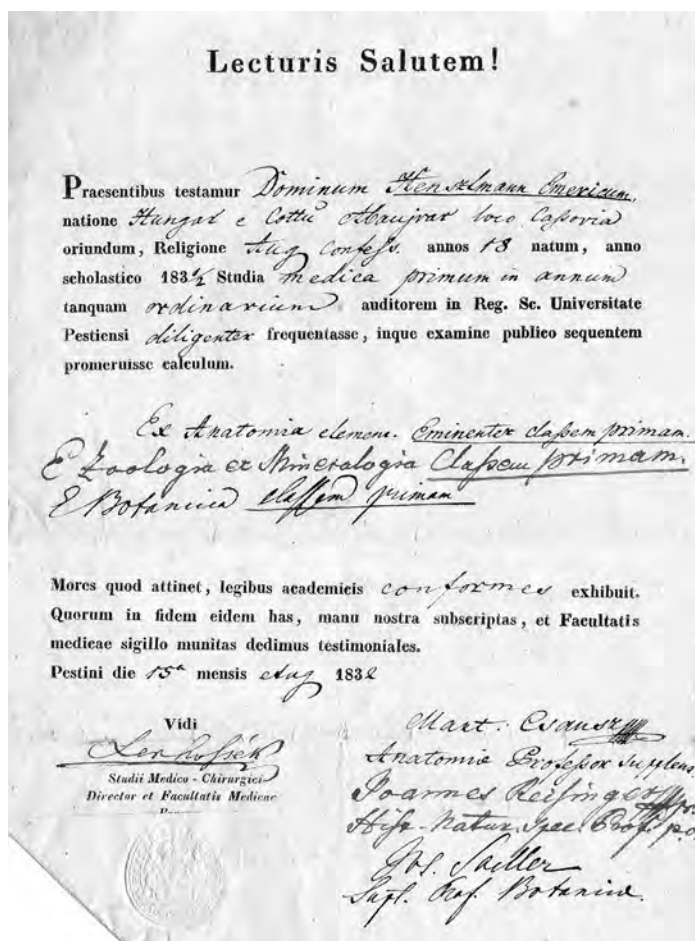 Lecturis Salutem!
Praesentibus testamur Dominum Henszlmann Emericum,
natione Hungar e Cottu Abaujvar loco Cassovia
oriundum, Religione Aug Confess. annos 18 natum, anno
scholastico 183½ Studia medica primum in annum
tanquam ordinarium auditorem in Reg. Sc. Universitate
Pestiensi diligenter frequentasse, inque examine publico sequentem
promeruisse calculum.
Ex Anatomia elemen. Eminenter classem primam.
E Zoologia et Mineralogia Classem primam.
E Botanica classem primam
Mores quod attinet, legibus academicis conformes exhibuit.
Quorum in fidem eidem has, manu nostra subscriptas, et Facultatis
medicae sigillo munitas dedimus testimoniales.
Pestini die 15ª mensis Aug 1832
Vidi
Lenhossék
Studii Medico-Chirurgici
Director et Facultatis Medicae
Mart. Csausz
Anatomiæ Professor Supplens
Joannes Reisinger
Hist. Natur. Spec. Prof. p.o.
Jos. Sadler
Supl. Prof. Botanicæ.